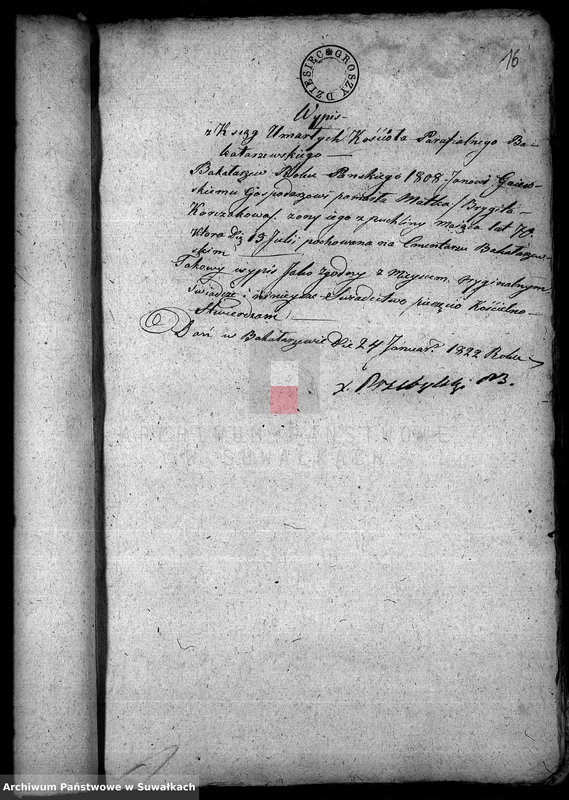 16
DZIESIĘC GROSZY
Wypis
z Ksiąg Umarłych Kościoła Parafialnego Ba-
kałarzewskiego
Bakałarzew Roku Panskiego 1808 Janowi Gaiew-
skiemu Gospodarzowi pomarła Matka / Brygita
Korczakowa / zony iego z puchliny maiąca lat
ktora d. 13 Julii pochowana na Cmentarzu Bakałarzew-
skim
Takowy wypis Jako zgodny z Mieyscem oryginalnym
świadczę i ninieysze Swiadectwo pieczęcio Kościelno
Stwierdzam
Dań w Bakałarzewie Die 24 Januar. 1822 Roku
X. Przybylski
ARCHIWUM PAŃSTWOWE
W SUWAŁKACH
Archiwum Państwowe w Suwałkach